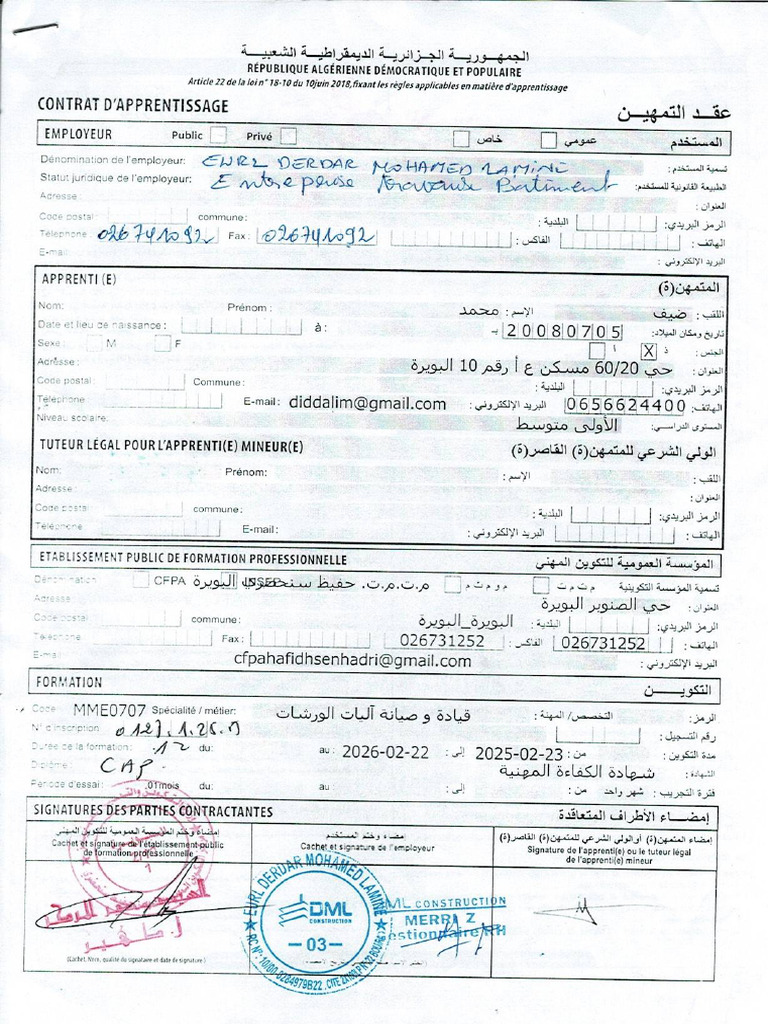 الجمهورية الجزائرية الديمقراطية الشعبية
RÉPUBLIQUE ALGÉRIENNE DÉMOCRATIQUE ET POPULAIRE
Article 22 de la loi n° 18-10 du 10juin 2018,fixant les règles applicables en matière d'apprentissage
CONTRAT D'APPRENTISSAGE عقد التمهين
EMPLOYEUR Public Privé خاص عمومي المستخدم
Dénomination de l'employeur: EURL DERDAR MOHAMED LAMINE تسمية المستخدم:
Statut juridique de l'employeur: Entreprise travaux Batiment الطبيعة القانونية للمستخدم:
Adresse: العنوان:
Code postal: commune: البلدية: الرمز البريدي:
Téléphone: 026741092 Fax: 026741092 الفاكس: الهاتف:
E-mail: البريد الإلكتروني:
APPRENTI (E) المتمهن(ة)
Nom: Prénom: الإسم: محمد اللقب: ضيف
Date et lieu de naissance: à: بـ 20080705 تاريخ ومكان الميلاد:
Sexe: M F أ ذ X الجنس:
Adresse: حي 60/20 مسكن ع أ رقم 10 البويرة العنوان:
Code postal: Commune: البلدية: الرمز البريدي:
Téléphone E-mail: diddalim@gmail.com البريد الإلكتروني: 0656624400 الهاتف:
Niveau scolaire: الأولى متوسط المستوى الدراسي:
TUTEUR LÉGAL POUR L'APPRENTI(E) MINEUR(E) الولي الشرعي للمتمهن(ة) القاصر(ة)
Nom: Prénom: الإسم: اللقب:
Adresse: العنوان:
Code postal commune: البلدية: الرمز البريدي:
Téléphone E-mail: البريد الإلكتروني: الهاتف:
ETABLISSEMENT PUBLIC DE FORMATION PROFESSIONNELLE المؤسسة العمومية للتكوين المهني
Dénomination CFPA INSFP م.ت.م.ت. حفيظ سنحضري البويرة م و م ت م م ت م ت تسمية المؤسسة التكوينية
Adresse: حي الصنوبر البويرة العنوان:
Code postal: commune: البويرة_البويرة البلدية: الرمز البريدي:
Téléphone: Fax: 026731252 الفاكس: 026731252 الهاتف:
E-mail: cfpahafidhsenhadri@gmail.com البريد الإلكتروني:
FORMATION التكوين
Code MME0707 Spécialité / métier: قيادة و صيانة آليات الورشات التخصص/ المهنة: الرمز:
N° d'inscription رقم التسجيل:
Durée de la formation: 12 du: au: 2026-02-22 إلى: 2025-02-23 من: مدة التكوين:
Diplôme: CAP شهادة الكفاءة المهنية الشهادة:
Période d'essai: .01mois du: au: إلى: من: شهر واحد فترة التجريب:
SIGNATURES DES PARTIES CONTRACTANTES إمضاء الأطراف المتعاقدة
إمضاء وختم المؤسسة العمومية للتكوين المهني
Cachet et signature de l'établissement public de formation professionnelle
إمضاء وختم المستخدم
Cachet et signature de l'employeur
إمضاء المتمهن(ة) أوالولي الشرعي للمتمهن(ة) القاصر(ة)
Signature de l'apprenti(e) ou le tuteur légal
de l'apprenti(e) mineur
EURL DERDAR MOHAMED LAMINE
DML
CONSTRUCTION
03
DML CONSTRUCTION
MERRI Z
Gestionnaire RH
(Cachet, Nom, qualité du signataire et date de signature)